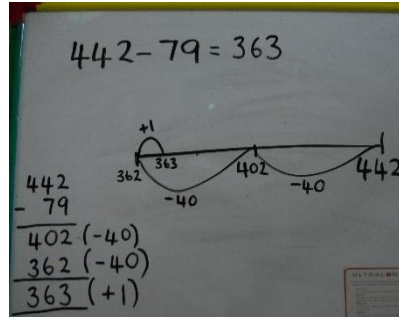 442-79=363
+1
362 363 402 442
-40 -40
442
- 79
402 (-40)
362 (-40)
363 (+1)
ULTRALON